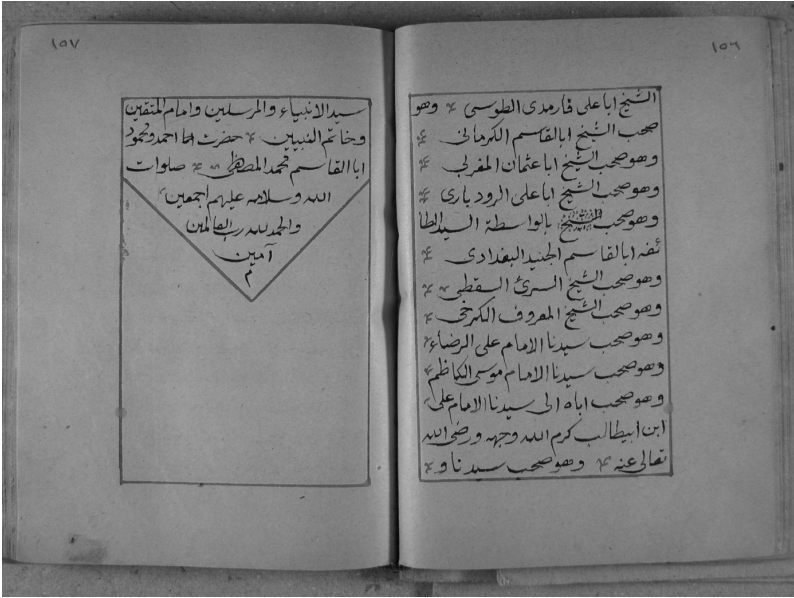 ١٥٦
الشيخ ابا على فارمدى الطوسى وهو
صحب الشيخ ابالقاسم الكرمانى
وهو صحب الشيخ ابا عثمان المغربى
وهو صحب الشيخ ابا على الرودبارى
وهو صحب الشيخ بالواسطة السيد الطا
ئفه ابالقاسم الجنيد البغدادى
وهو صحب الشيخ السرئ السقطى
وهو صحب الشيخ المعروف الكرخى
وهو صحب سيدنا الامام على الرضاء
وهو صحب سيدنا الامام موسى الكاظم
وهو صحب اباه الى سيدنا الامام على
ابن ابيطالب كرم الله وجهه ورضى الله
تعالى عنه وهو صحب سيدنا و
١٥٧
سيد الانبياء والمرسلين وامام المتقين
وخاتم النبيين حضرت احمد ومحمود
ابا القاسم محمد المصطفى صلوات
الله وسلامه عليهم اجمعين
والحمد لله رب العالمين
آمين
م